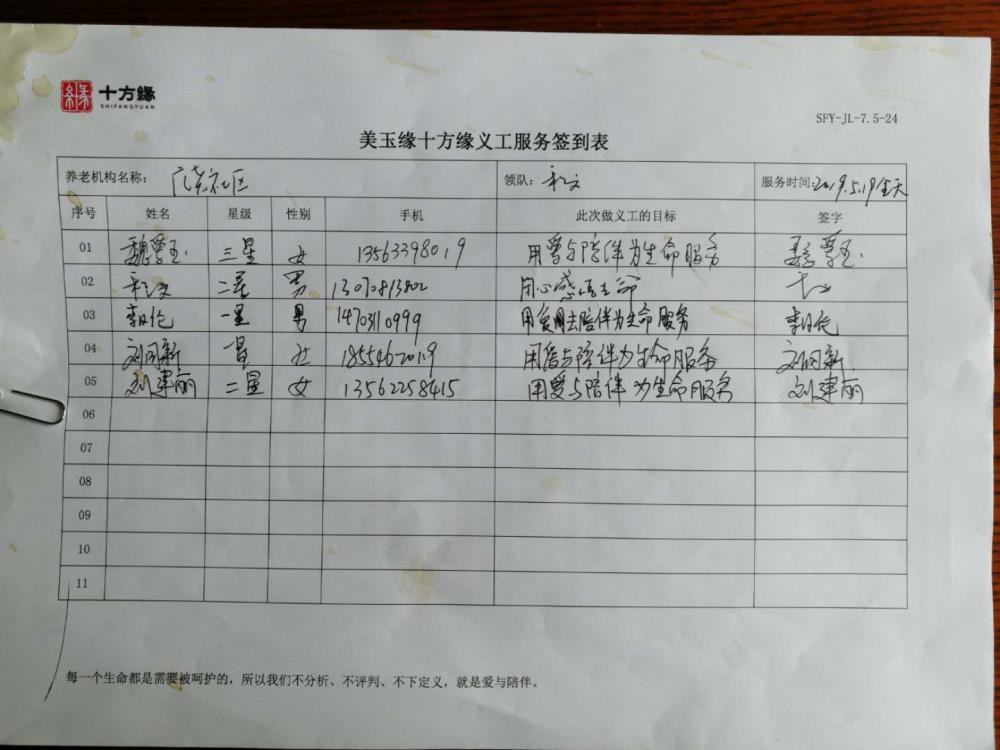 十方缘
SHIFANGYUAN
SFY-JL-7.5-24
美玉缘十方缘义工服务签到表
养老机构名称: 社区 领队: 服务时间: 2019.5.19全天
序号 姓名 星级 性别 手机 此次做义工的目标 签字
01 三星 女 13563398019 用爱与陪伴为生命服务
02 二星 男 13070813802 用心感悟生命
03 一星 男 14703110999 陪伴为生命服务
04 一星 女 用爱与陪伴为生命服务
05 刘建丽 二星 女 13562258415 用爱与陪伴为生命服务 刘建丽
06
07
08
09
10
11
每一个生命都是需要被呵护的，所以我们不分析、不评判、不下定义，就是爱与陪伴。